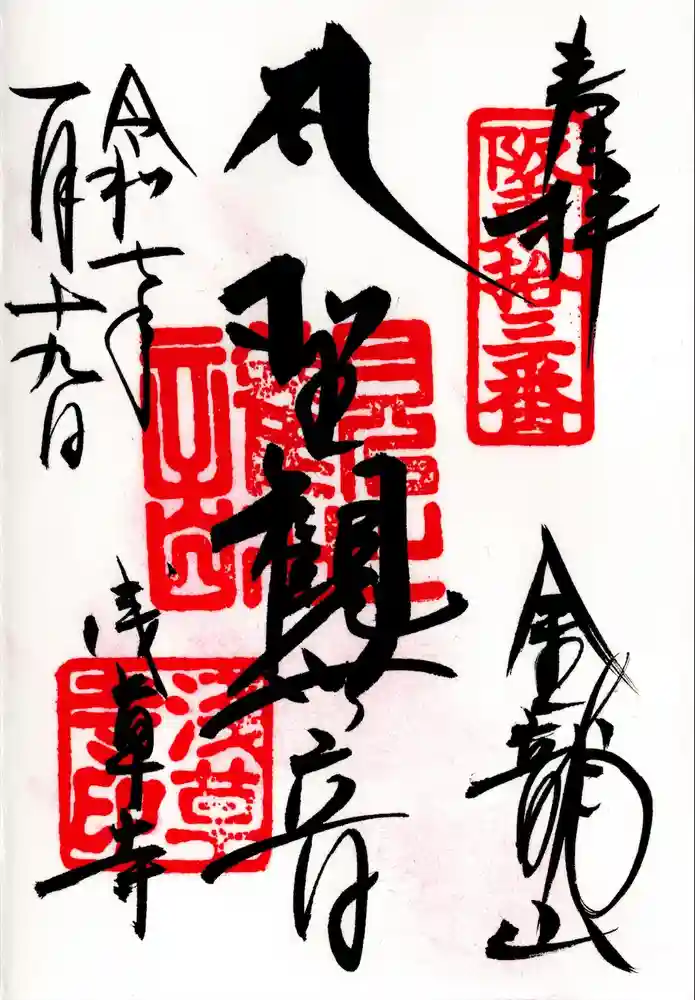 奉拝
阪東拾三番
金龍山
聖観世音
令和七年
一月十九日
浅草寺
浅草寺印